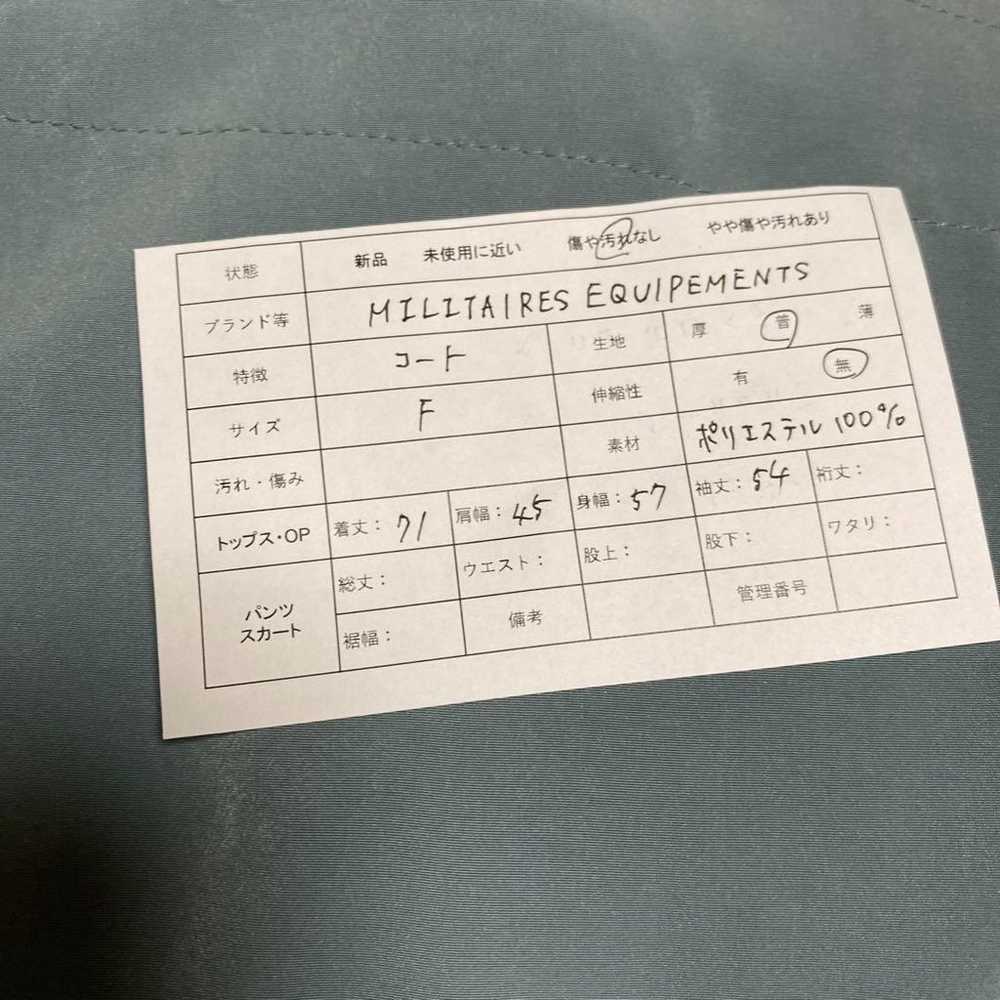 状態 新品 未使用に近い 傷や汚れなし やや傷や汚れあり
ブランド等 MILITAIRES EQUIPEMENTS
特徴 コート 生地 厚 普 薄
サイズ F 伸縮性 有 無
汚れ・傷み 素材 ポリエステル 100%
トップス・OP 着丈: 71 肩幅: 45 身幅: 57 袖丈: 54 裄丈:
パンツ
スカート
総丈: ウエスト: 股上: 股下: ワタリ:
裾幅: 備考 管理番号